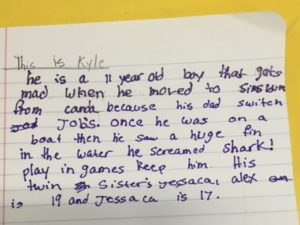 This is Kyle
he is a 11 year old boy that gets
mad when he moved to
from canda because his dad switch
JOBS. once he was on a
boat then he saw a huge fin
in the water he screamed shark!
play in games keep him. His
twin Sister's Jessaca, alex
is 19 and Jessaca is 17.